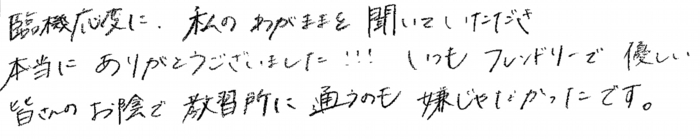 臨機応変に、私のわがままを聞いていただき
本当にありがとうございました!!! いつもフレンドリーで優しい
皆さんのお陰で教習所に通うのも嫌じゃなかったです。